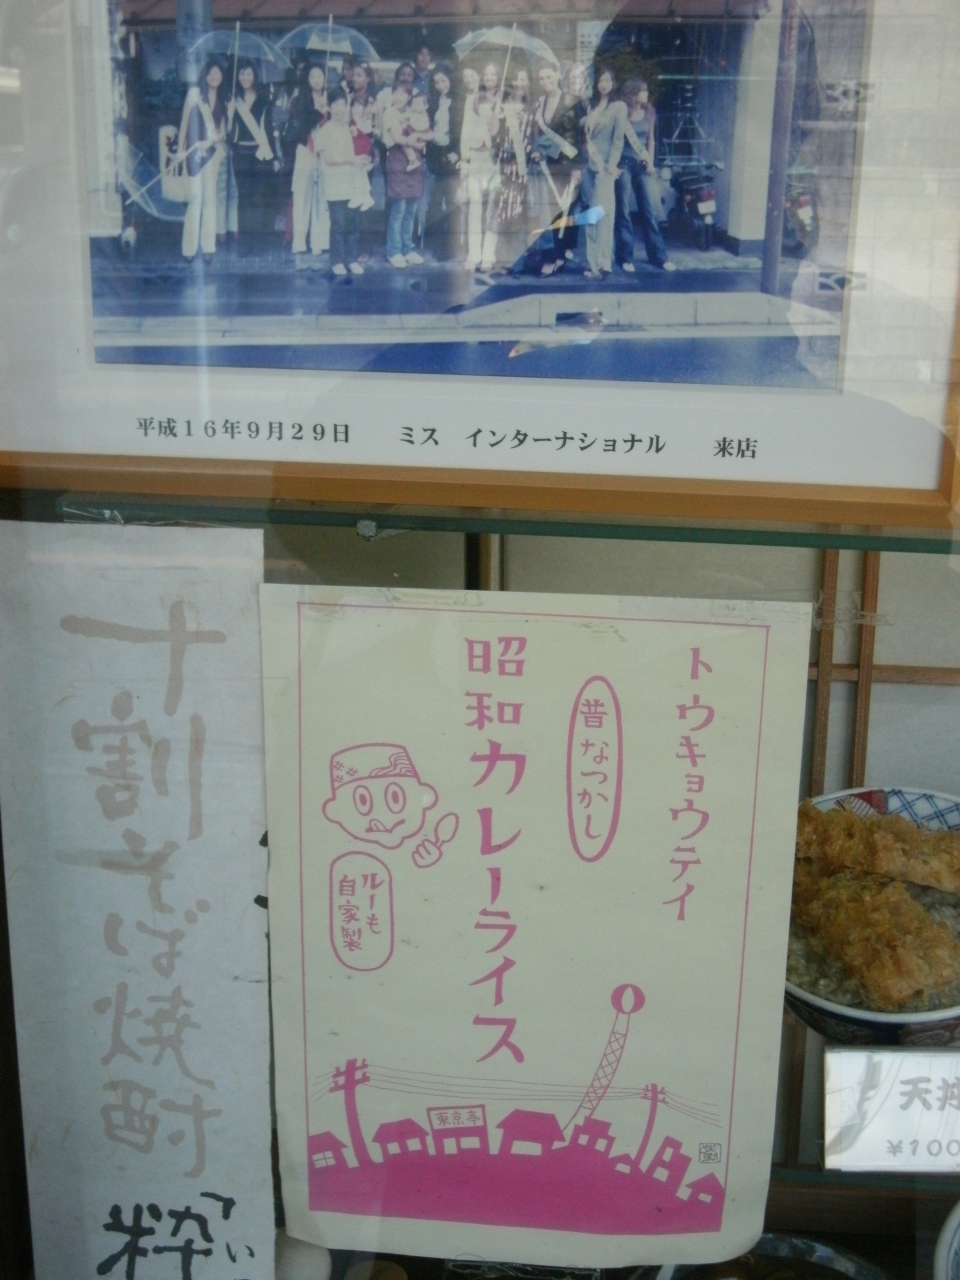 平成16年9月29日　ミス　インターナショナル　来店
トウキョウテイ
昔なつかし
昭和カレーライス
ルーも
自家製
東京亭
十割そば焼酎
粋
天丼
¥100